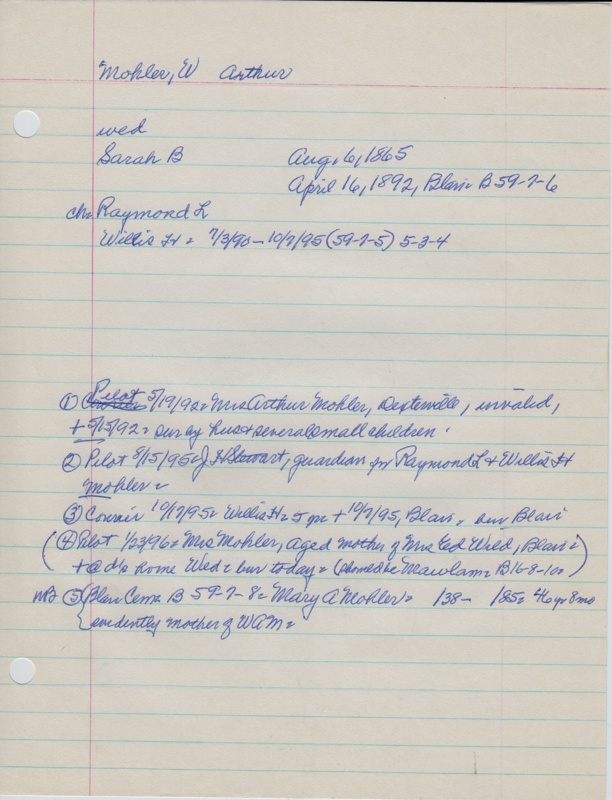 Mohler, W Arthur
wed
Sarah B Aug. 6, 1865
April 16, 1892, Blair B 59-7-6
ch. Raymond L
Willis H = 7/3/90 - 10/7/95 (59-7-5) 5-3-4
① Pilot 5/19/92 = Mrs Arthur Mohler, invalid,
+ 5/15/92 = sur by hus + several small children.
② Pilot 8/15/95 = J H Stewart, guardian for Raymond L + Willis H
Mohler =
③ Courier 10/17/95 = Willis H = 5 yr + 10/7/95, Blair. bur Blair
(④ Pilot 1/23/96 = Mrs Mohler, aged mother of Mrs Ed Wild, Blair =
+ @ d's home Wed = bur today = B16-8-10 = )
NB ⑤ (Blair Cem. B 59-7-8 = Mary A Mohler = 138- 185= 46 yr 8mo
evidently mother of WAM =